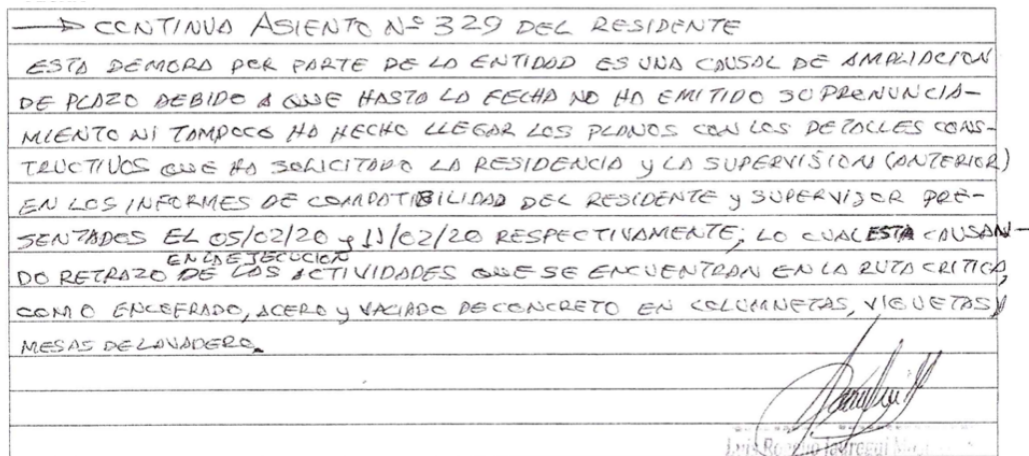 → CONTINUA ASIENTO Nº 329 DEL RESIDENTE
ESTA DEMORA POR PARTE DE LA ENTIDAD ES UNA CAUSAL DE AMPLIACION
DE PLAZO DEBIDO A QUE HASTA LA FECHA NO HA EMITIDO SU PRONUNCIA-
MIENTO NI TAMPOCO HA HECHO LLEGAR LOS PLANOS CON LOS DETALLES CONS-
TRUCTIVOS QUE HA SOLICITADO LA RESIDENCIA y LA SUPERVISION (ANTERIOR)
EN LOS INFORMES DE COMPATIBILIDAD DEL RESIDENTE y SUPERVISOR PRE-
SENTADOS EL 05/02/20 y 11/02/20 RESPECTIVAMENTE; LO CUAL ESTA CAUSAN-
EN LA EJECUCION
DO RETRAZO DE LAS ACTIVIDADES QUE SE ENCUENTRAN EN LA RUTA CRITICA,
COMO ENCOFRADO, ACERO y VACIADO DE CONCRETO EN COLUMNETAS, VIGUETAS y
MESAS DE LAVADERO.
Luis Jauregui